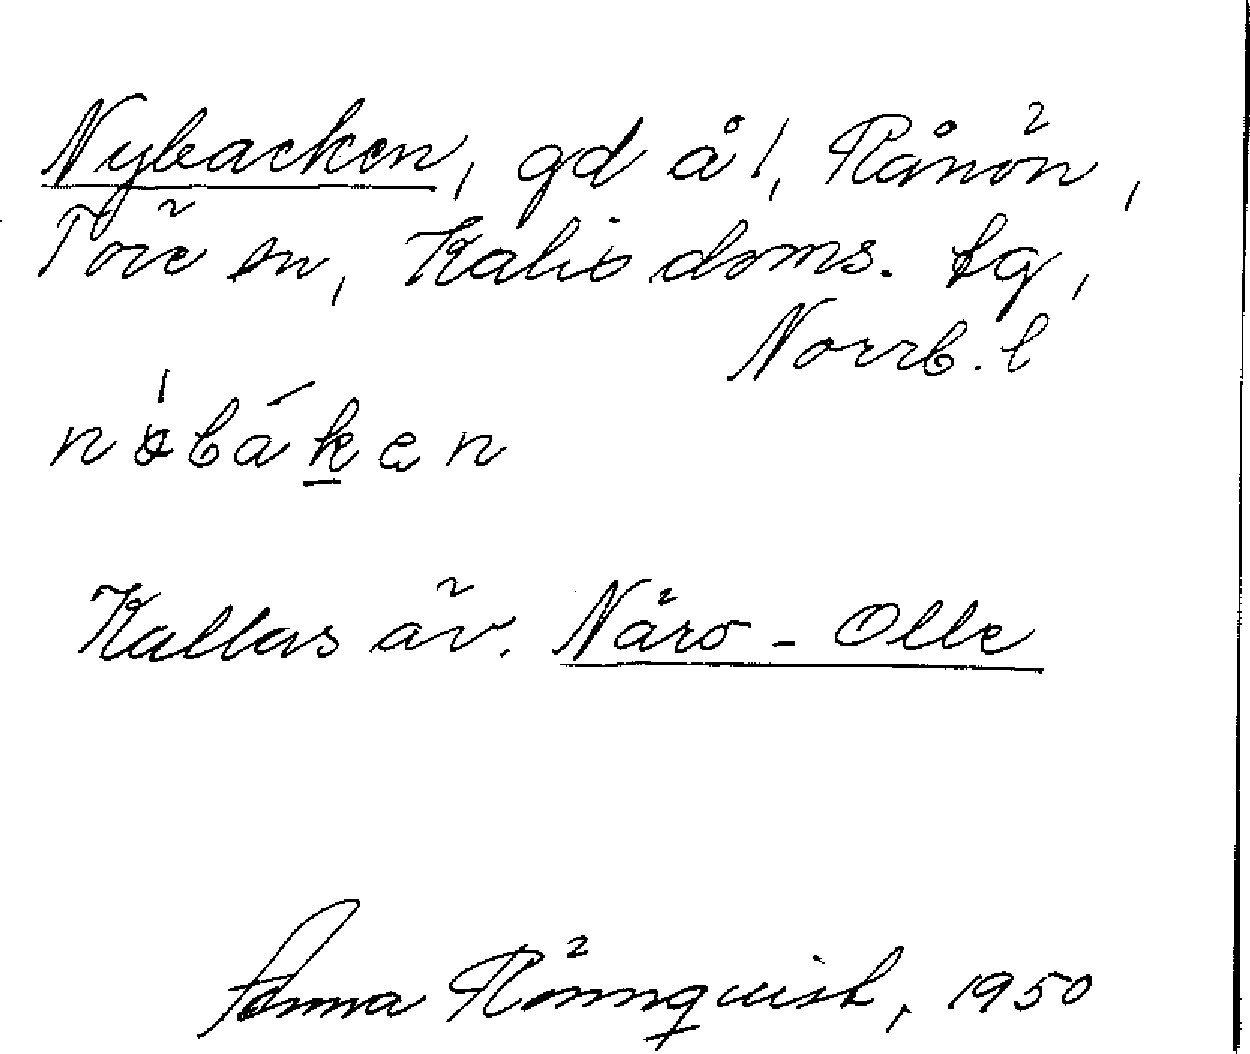 Nybacken, gd å 1, Rånön,
Töre sn, Kalix doms. tg,
Norrb. l
Kallas äv. Når〇-Olle
Anna Rönnquist, 1950